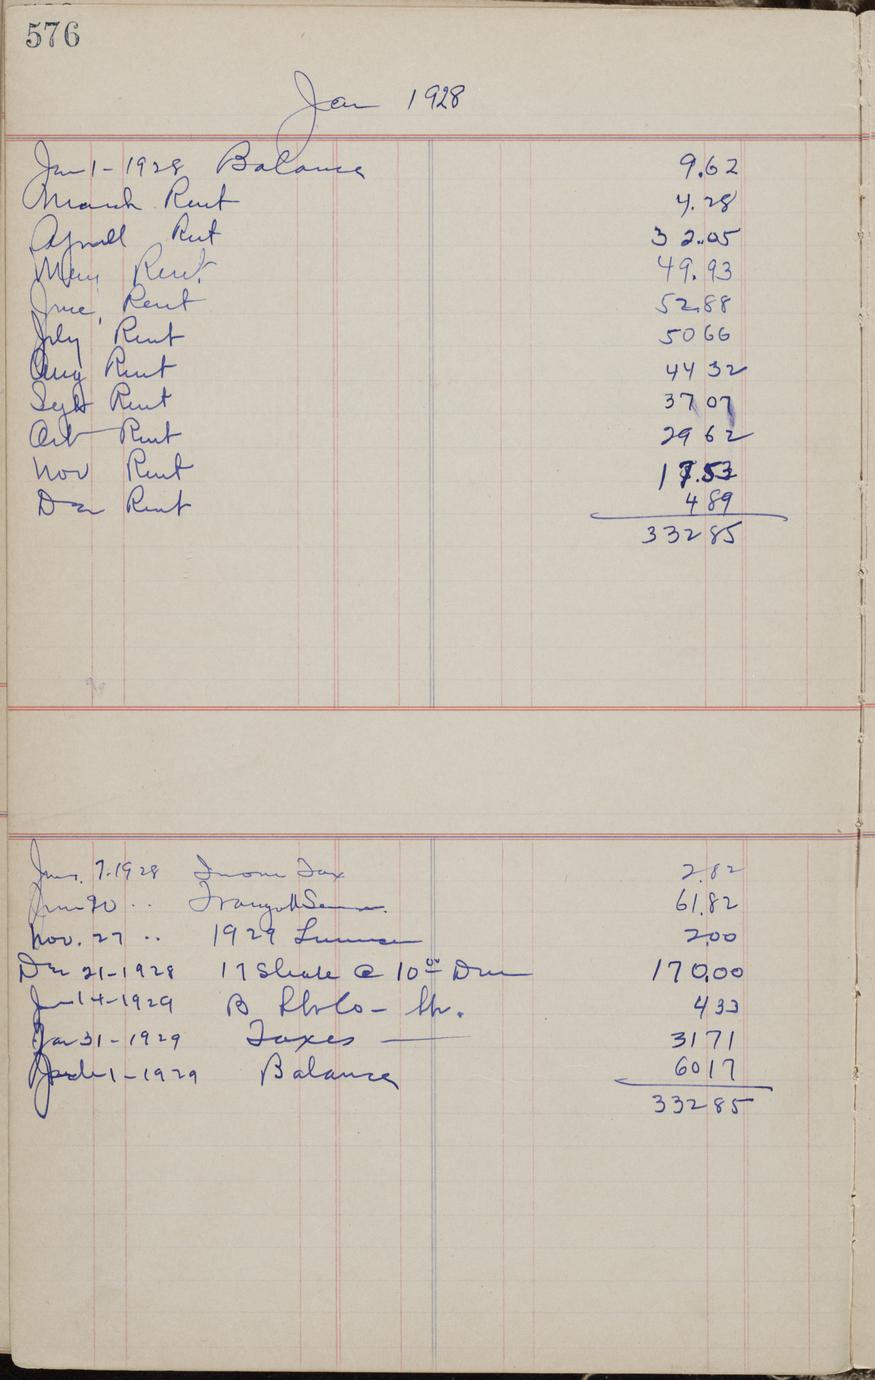 576
Jan 1928
Jan 1 - 1928 Balance 9.62
March Rent 4.28
Aprill Rent 32.05
May Rent 49.93
June Rent 52.88
July Rent 50 66
Aug Rent 44 32
Sept Rent 37 07
Oct Rent 29 62
Nov Rent 17.53
Dec Rent 4 89
332 85
7-1928 Income Tax 2.82
June 20 " 61.82
Nov. 27 " 1929 2.00
Dec 21-1928 17 Share @ 10.00 170.00
Jan 14-1929 B 4 33
Jan 31-1929 Taxes 31 71
1-1929 Balance 60 17
332 85